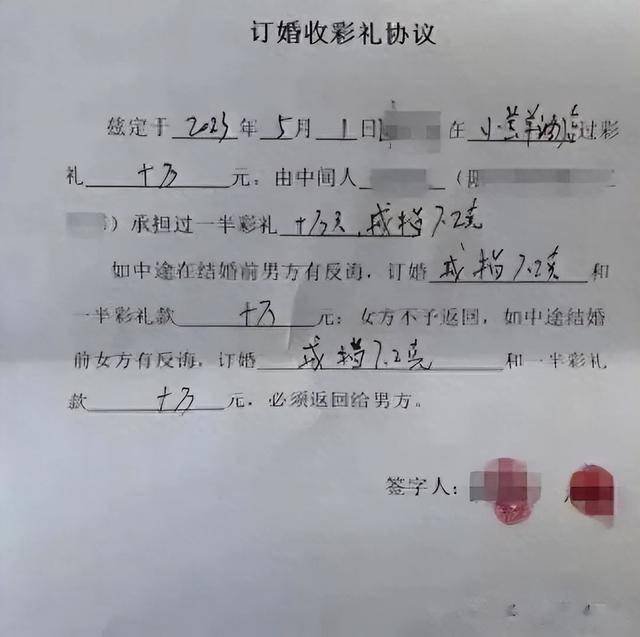 订婚收彩礼协议
兹定于2023年5月1日在小黄羊酒店过彩
礼十万元。由中间人（
）承担过一半彩礼十万元,戒指7.2克
如中途在结婚前男方有反悔，订婚戒指7.2克和
一半彩礼款十万元；女方不予返回，如中途结婚
前女方有反悔，订婚戒指7.2克和一半彩礼
款十万元．必须返回给男方。
签字人：